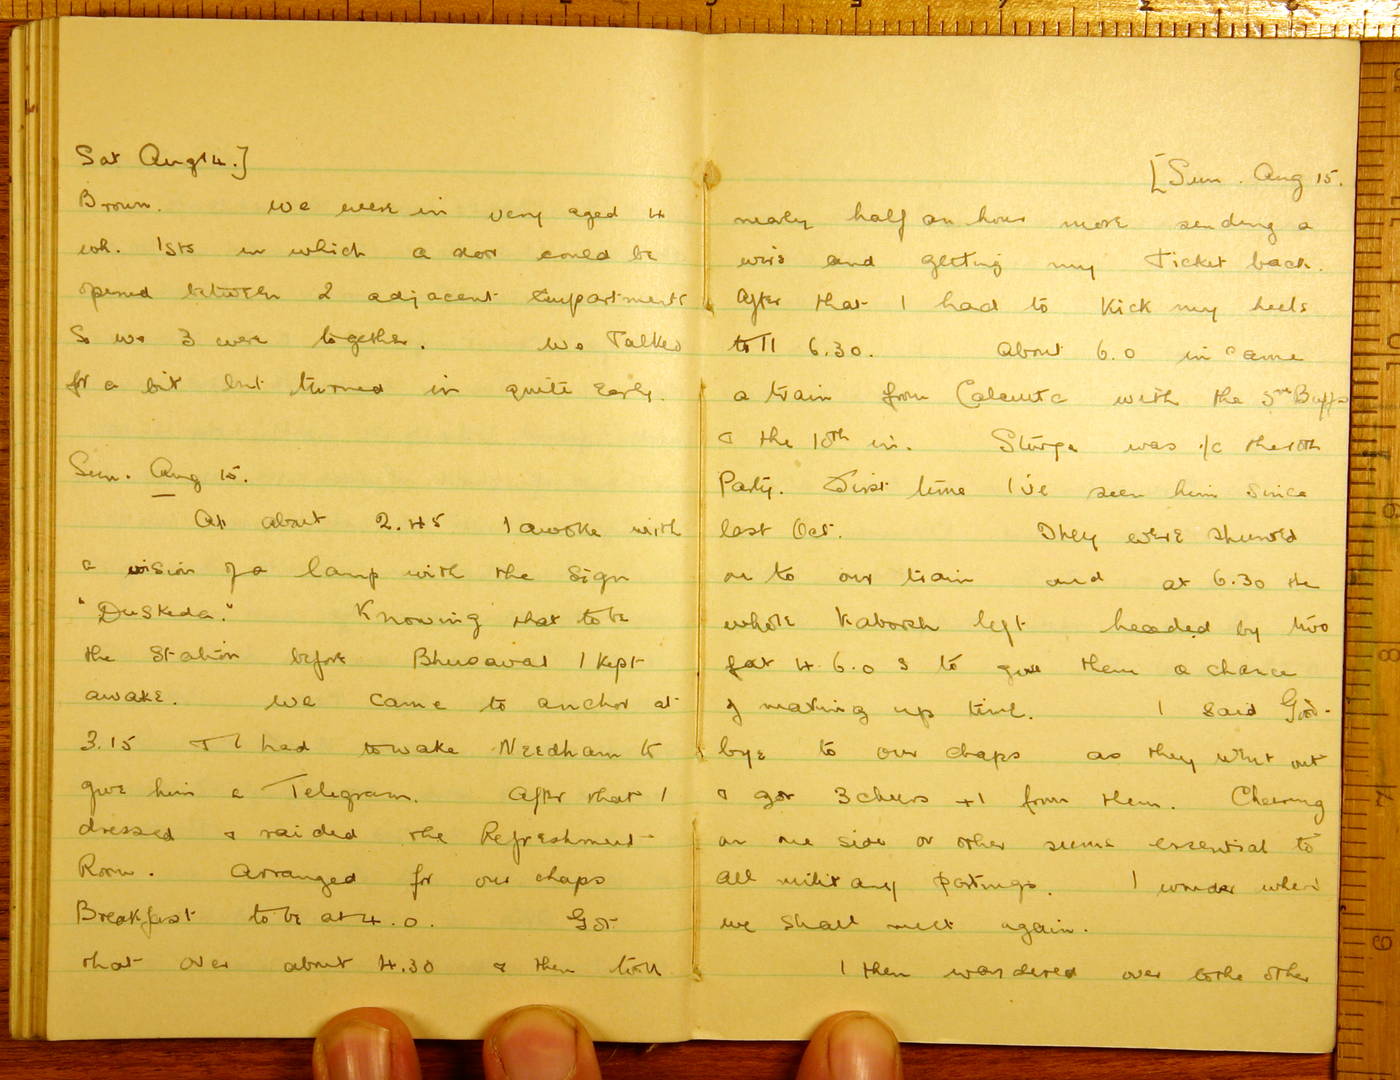 Sat Aug 14.]
Brown. We were in very aged 4
wh. 1sts in which a door could be
opened between 2 adjacent compartments
So we 3 were together. We Talked
for a bit but turned in quite early.
Sun. Aug 15.
At about 2.45 I awoke with
a vision of a lamp with the sign
"Duskeda." Knowing that to be
the station before Bhusaval I kept
awake. We came to anchor at
3.15 & I had to wake Needham to
give him a Telegram. After that I
dressed & raided the Refreshment
Room. Arranged for our chaps
Breakfast to be at 4.0. Got
that over about 4.30 & then took
[Sun. Aug 15.
nearly half an hour more sending a
wire and getting my Ticket back.
After that I had to kick my heels
till 6.30. About 6.0 in came
a train from Calcutta with the 5th Buffs
& the 10th in. Sturge was i/c the 10th
Party. First time I've seen him since
last Oct. They were shunted
on to our train and at 6.30 the
whole kaboosh left headed by two
fat 4.6.0 s to give them a chance
of making up time. I said Good-
bye to our chaps as they went out
& got 3 cheers +1 from them. Cheering
on one side or other seems essential to
all military partings. I wonder when
we shall meet again.
I then wandered over to the other